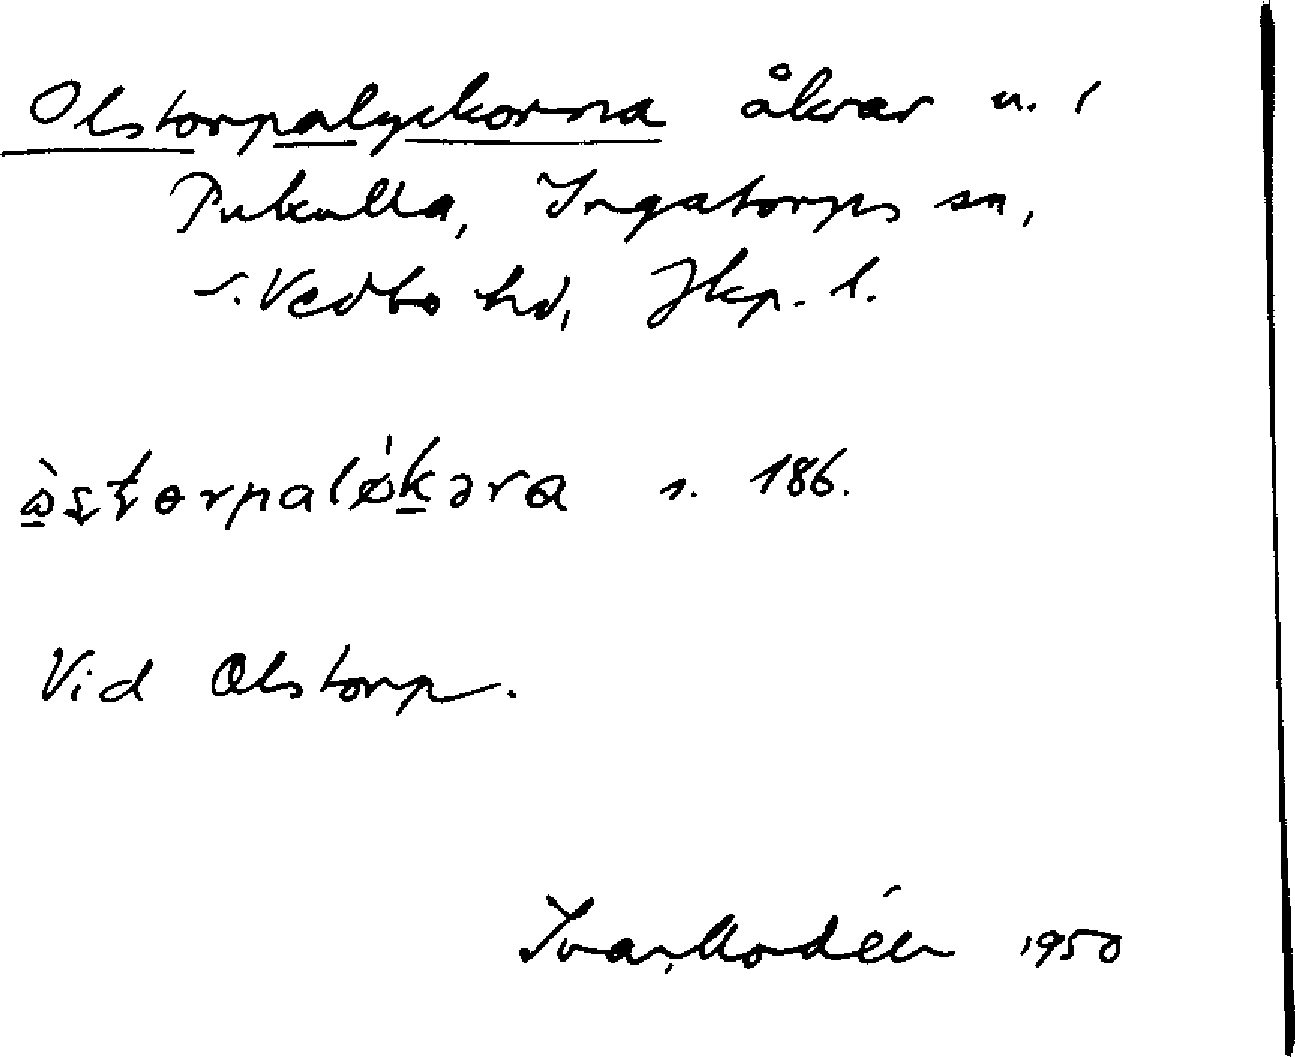 Olstorpalyckorna åkrar u. i
Pukulla, Ingatorps sn,
S. Vedbo hd, Jkp. l.
ɷ̀sʈɵrpalǿkəra s. 186.
Vid Olstorp.
Ivar Modéer 1950